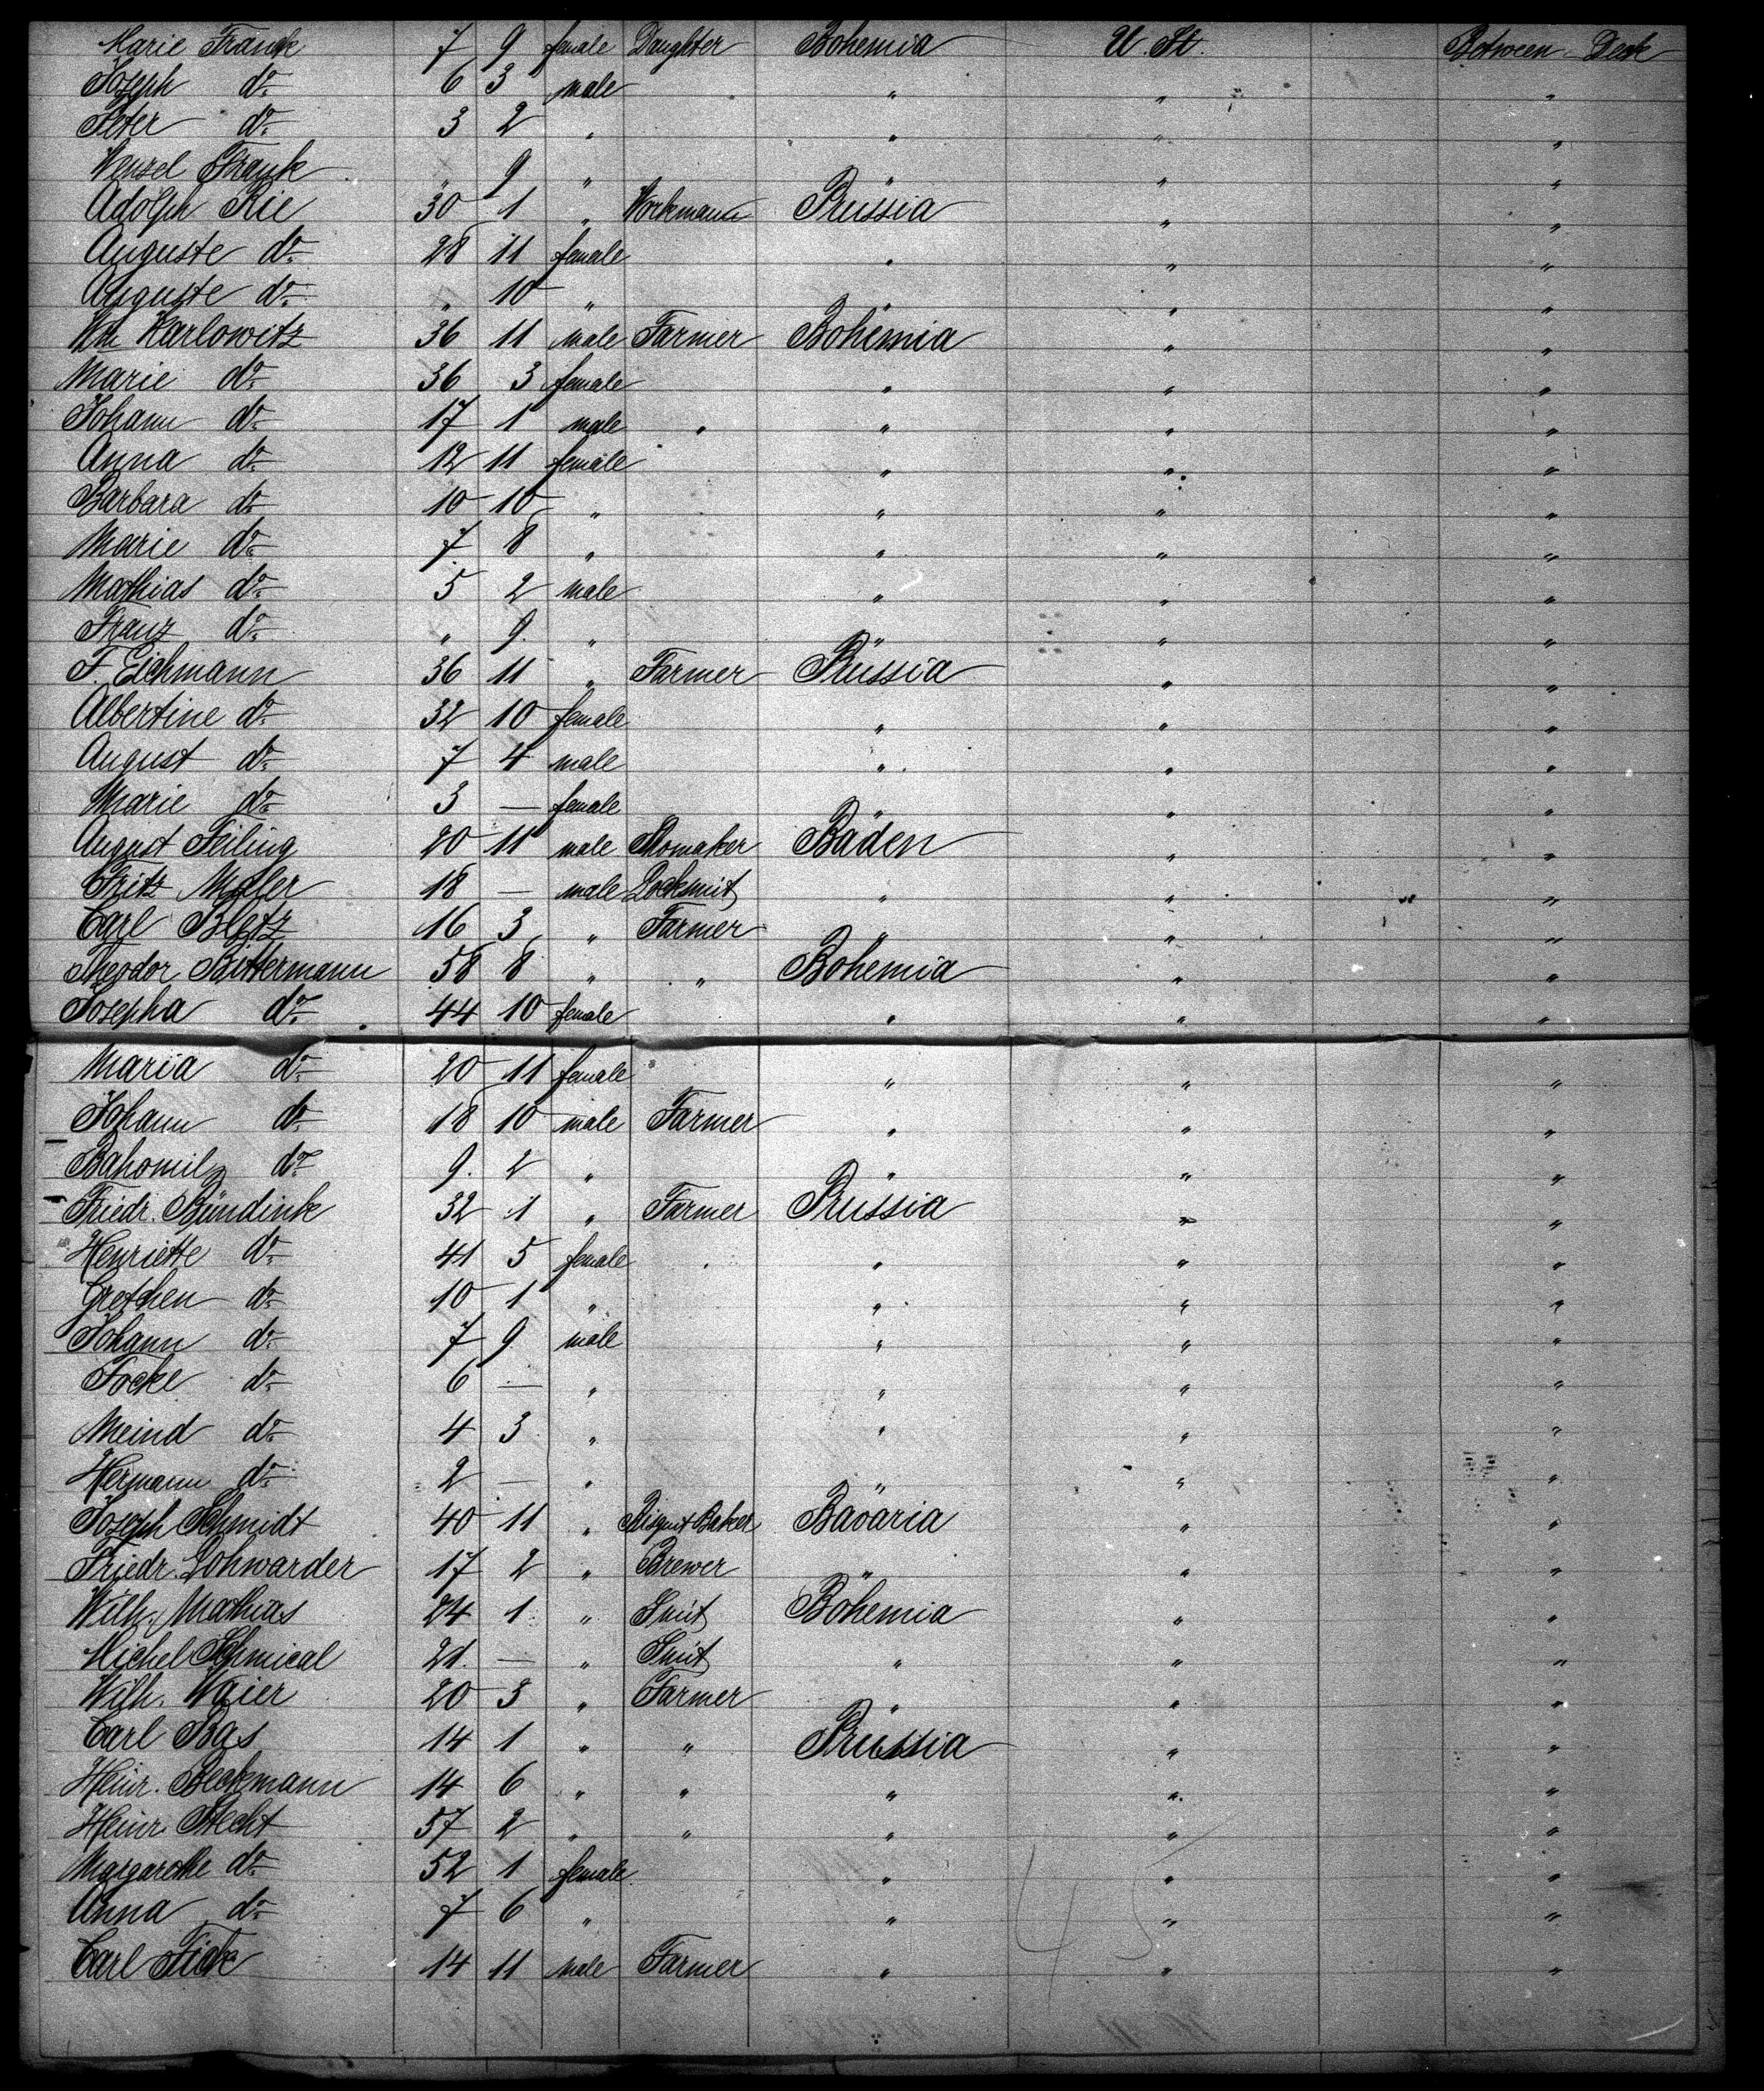 Marie Frank 7 9 female Daughter Bohemia U. St. Between Deck
Joseph do. 6 3 male " " "
Peter do. 3 2 " " " "
Wenzel Frank " 9 " " " "
Adolph Rie 30 1 " Workmann Prussia " "
Auguste do. 28 11 female " " "
Auguste do. " 10 " " " "
Wm Karlowitz 36 11 male Farmer Bohemia " "
Marie do. 36 3 female " " "
Johann do. 17 1 male " " " "
Anna do. 12 11 female " " "
Barbara do. 10 10 " " " "
Marie do. 7 8 " " " "
Mathias do. 5 2 male " " "
Franz do. " 9 " " " "
F. Eichmann 36 11 " Farmer Prussia " "
Albertine do. 32 10 female " " "
August do. 7 4 male " " "
Marie do. 3 — female " " "
August Feiling 20 11 male Shomaker Baden " "
Fritz 18 — male Locksmit " " "
Carl Bletz 16 3 " Farmer " " "
Theodor Bittermann 58 8 " " Bohemia " "
Josepha do. 44 10 female " " "
Maria do. 20 11 female " " "
Johann do. 18 10 male Farmer " " "
Bahomil do. 9 2 " " " "
Friedr. Bündink 32 1 " Farmer Prussia " "
Henriette do. 41 5 female " " "
Gretchen do. 10 1 " " " "
Johann do. 7 9 male " " "
Focke do. 6 — " " " "
Meind do. 4 3 " " " "
Hermann do. 2 — " " " "
Joseph Schmidt 40 11 " Bisquit Baker Bavaria " "
Friedr. Lohwarder 17 2 " Brewer " " "
Wilh. Mathias 24 1 " Smit Bohemia " "
Michel Schmical 21 — " Smit " " "
Wilh. Waier 20 3 " Farmer " " "
Carl Bas 14 1 " " Prussia " "
Heinr. Beckmann 14 6 " " " " "
Heinr. Stecht 57 2 " " " " "
Margarethe do. 52 1 female " " "
Anna do. 7 6 " " " "
Carl Fick 14 11 male Farmer " " "
45